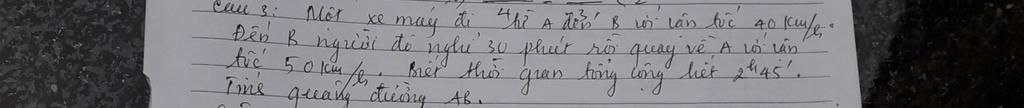 Câu 3: Một xe máy đi từ A đến B với vận tốc 40 km/h.
Đến B người đó nghỉ 30 phút rồi quay về A với vận
tốc 50 km/h. Biết thời gian tổng cộng hết 2h45'.
Tính quãng đường AB.